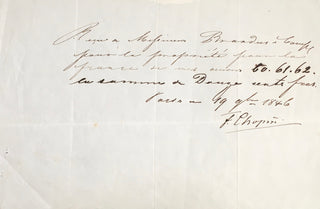 Reçu de Messieurs Brandus & Comp.
pour la propriété pour la
france de mes œuvres 60. 61. 62.
la somme de Douze cents frcs.
Paris 19 9bre 1846
F. Chopin